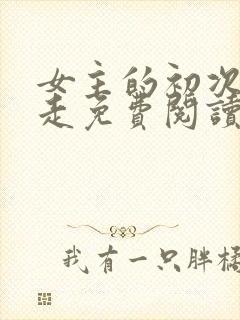 女主的初次
走免費閱讀
我有一只胖橘